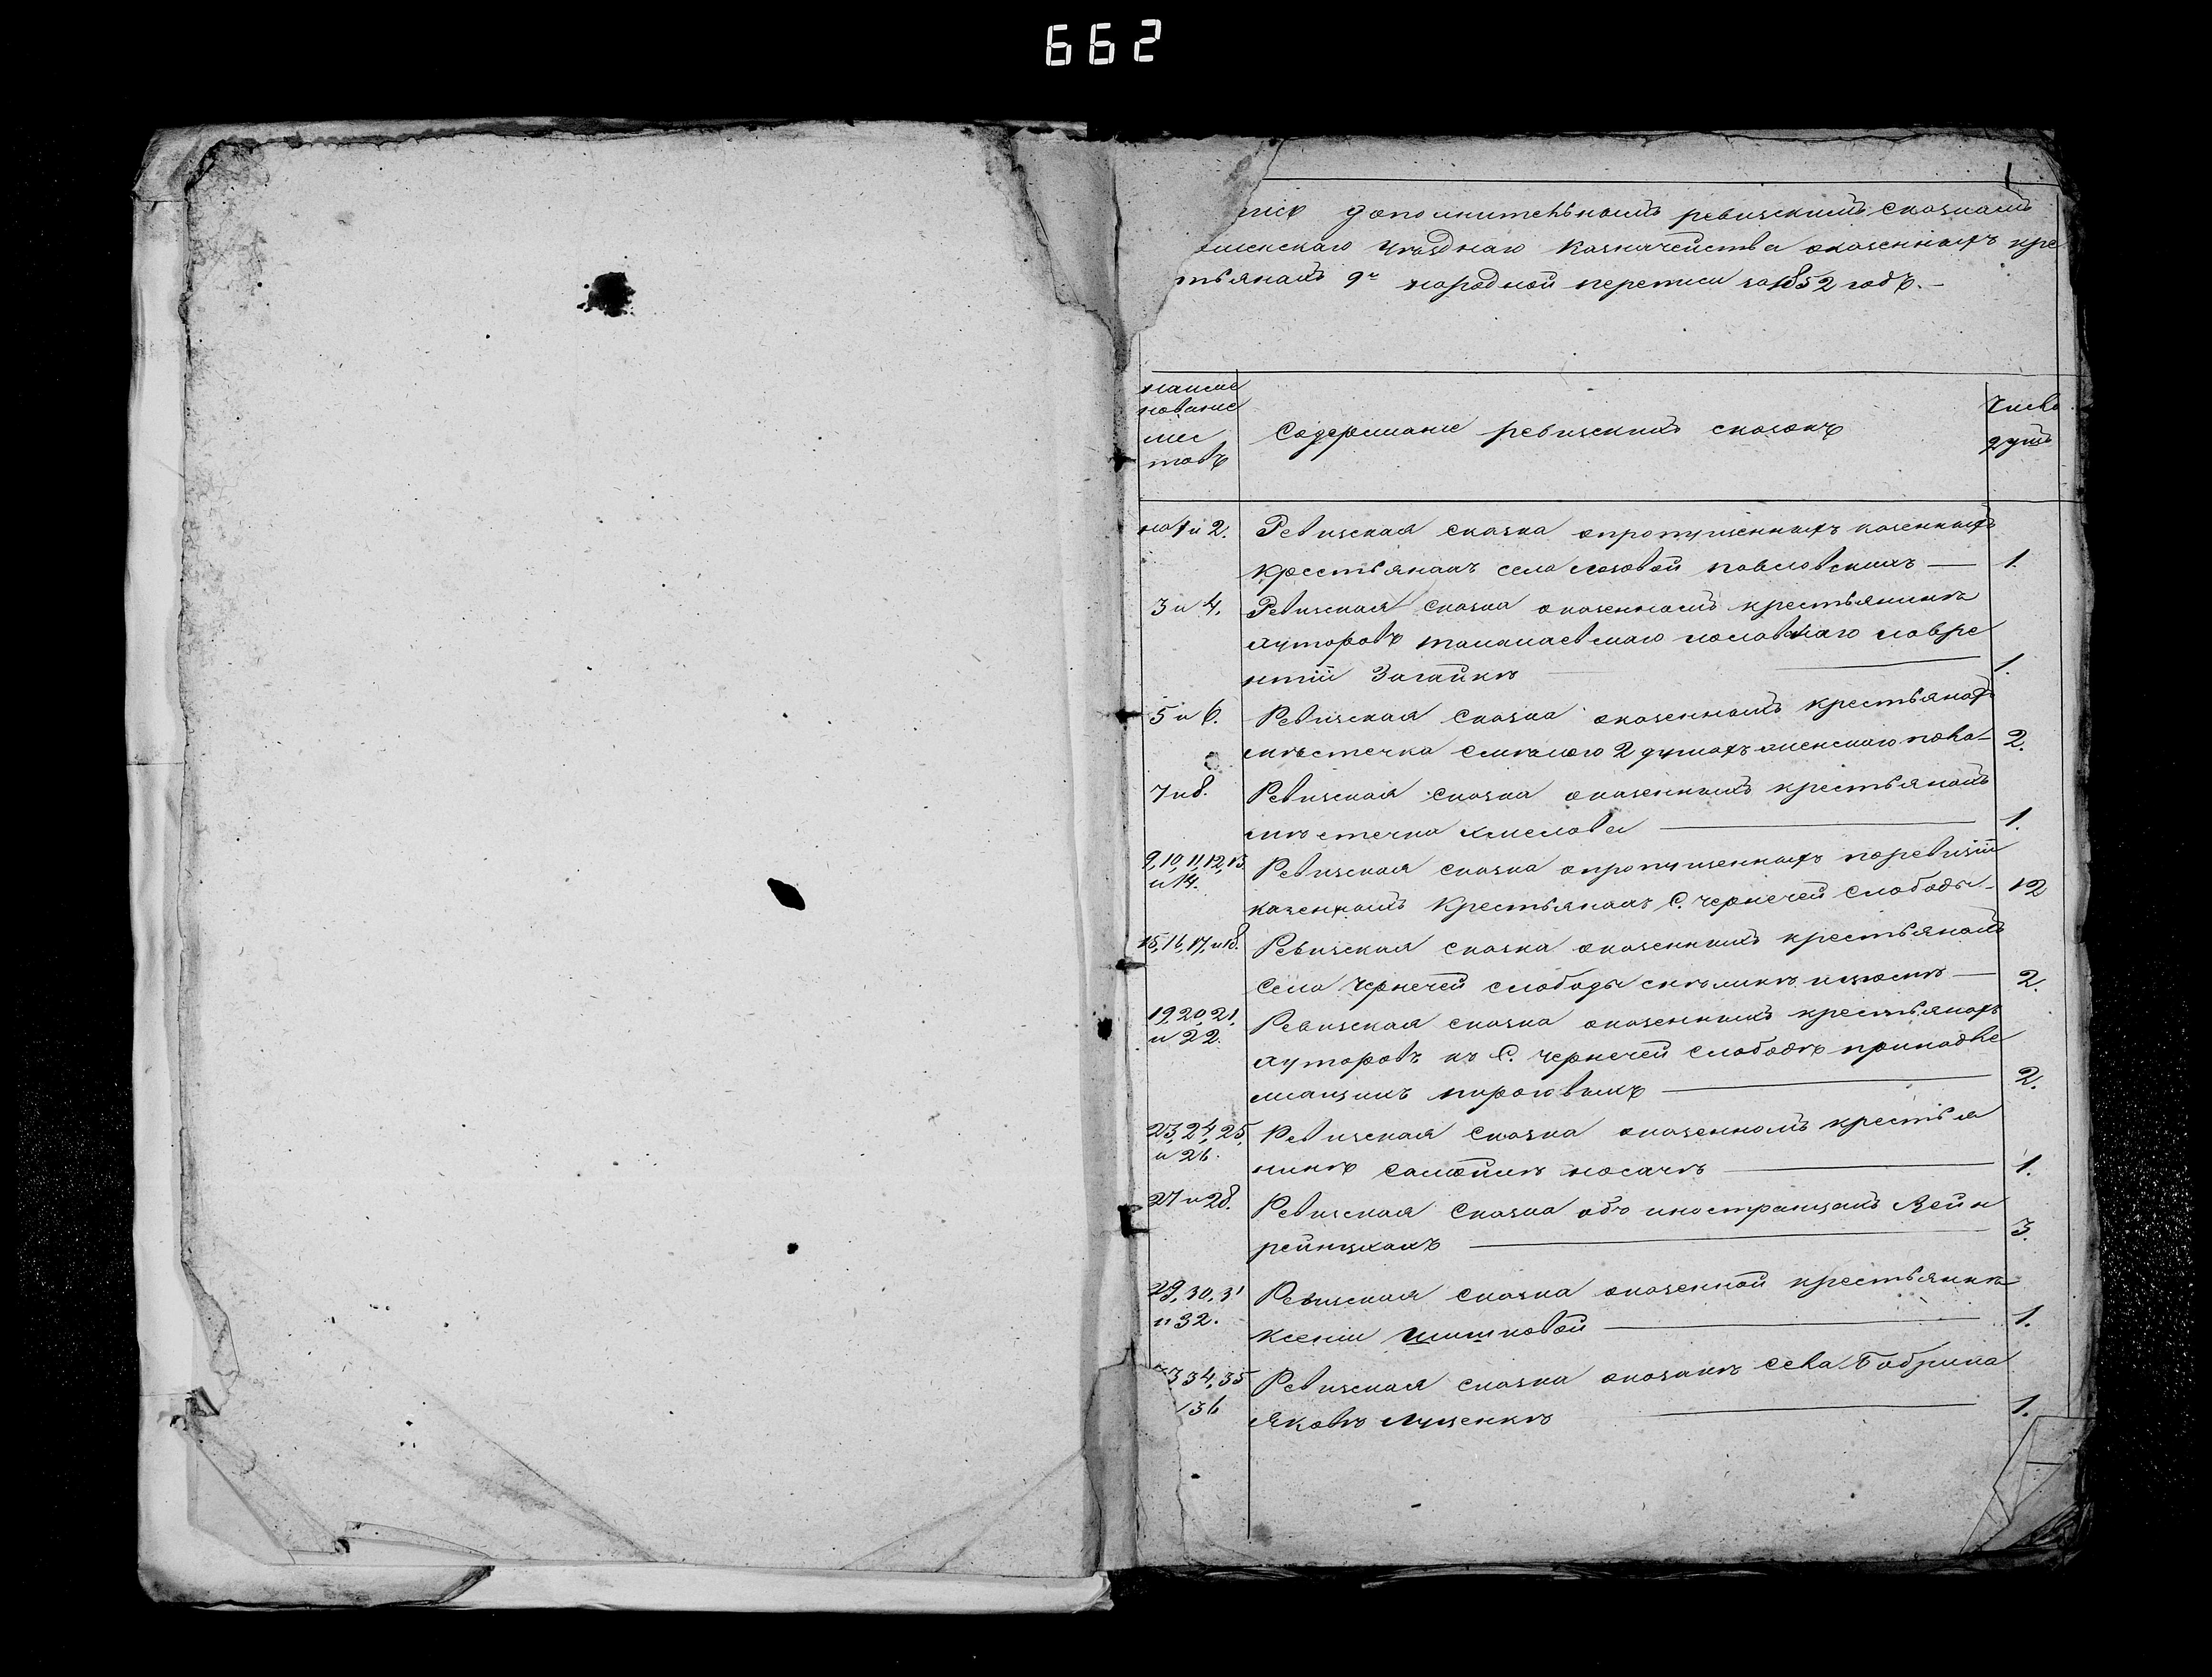 662
1
дополнительнымъ ревизскимъ сказкамъ
уѣзднаго Казначейства оказенныхъ кре
тьянахъ 9й народной переписи за 1852 годъ.-
наиме
нование
лис
товъ
Содержание ревизскихъ сказокъ
Число
душъ
на 1 и 2. Ревизская сказка опропущенныхъ казенныхъ
крестьянахъ села Павловскихъ — 1.
3 и 4. Ревизская сказка оказенномъ крестьянинѣ
хуторовъ лавре
нтiи Загайкѣ — 1.
5 и 6. Ревизская сказка оказенныхъ крестьянахъ
мѣстечка Смѣлого 2 душахъ - 2.
7 и 8. Ревизская сказка оказенныхъ крестьянахъ
мѣстечка хмелова — 1.
9, 10, 11, 12, 13
и 14. Ревизская сказка опропущенныхъ поревизiи
казенныхъ Крестьянахъ С. чернечей Слободы - 12
15, 16, 17, и 18. Ревизская сказка оказенныхъ крестьянахъ
Села Чернечей слободы — 2.
19, 20, 21,
и 22. Ревизская сказка оказенныхъ крестьянахъ
хуторовъ къ С. чернечей Слободѣ принадле
жащихъ пироговыхъ — 2.
23, 24, 25,
и 26. Ревизская Сказка оказенномъ крестья
нинѣ Самойлѣ носачѣ — 1.
27 и 28. Ревизская Сказка объ иностранцахъ Вейн
рейнцхахъ — 3.
29, 30, 31
и 32. Ревизская сказка оказенной крестьянкѣ
Ксенiи Шишковой — 1.
3 34, 35
36 Ревизская сказка оказакѣ Села Бобрика
Яковѣ Луценкѣ — 1.